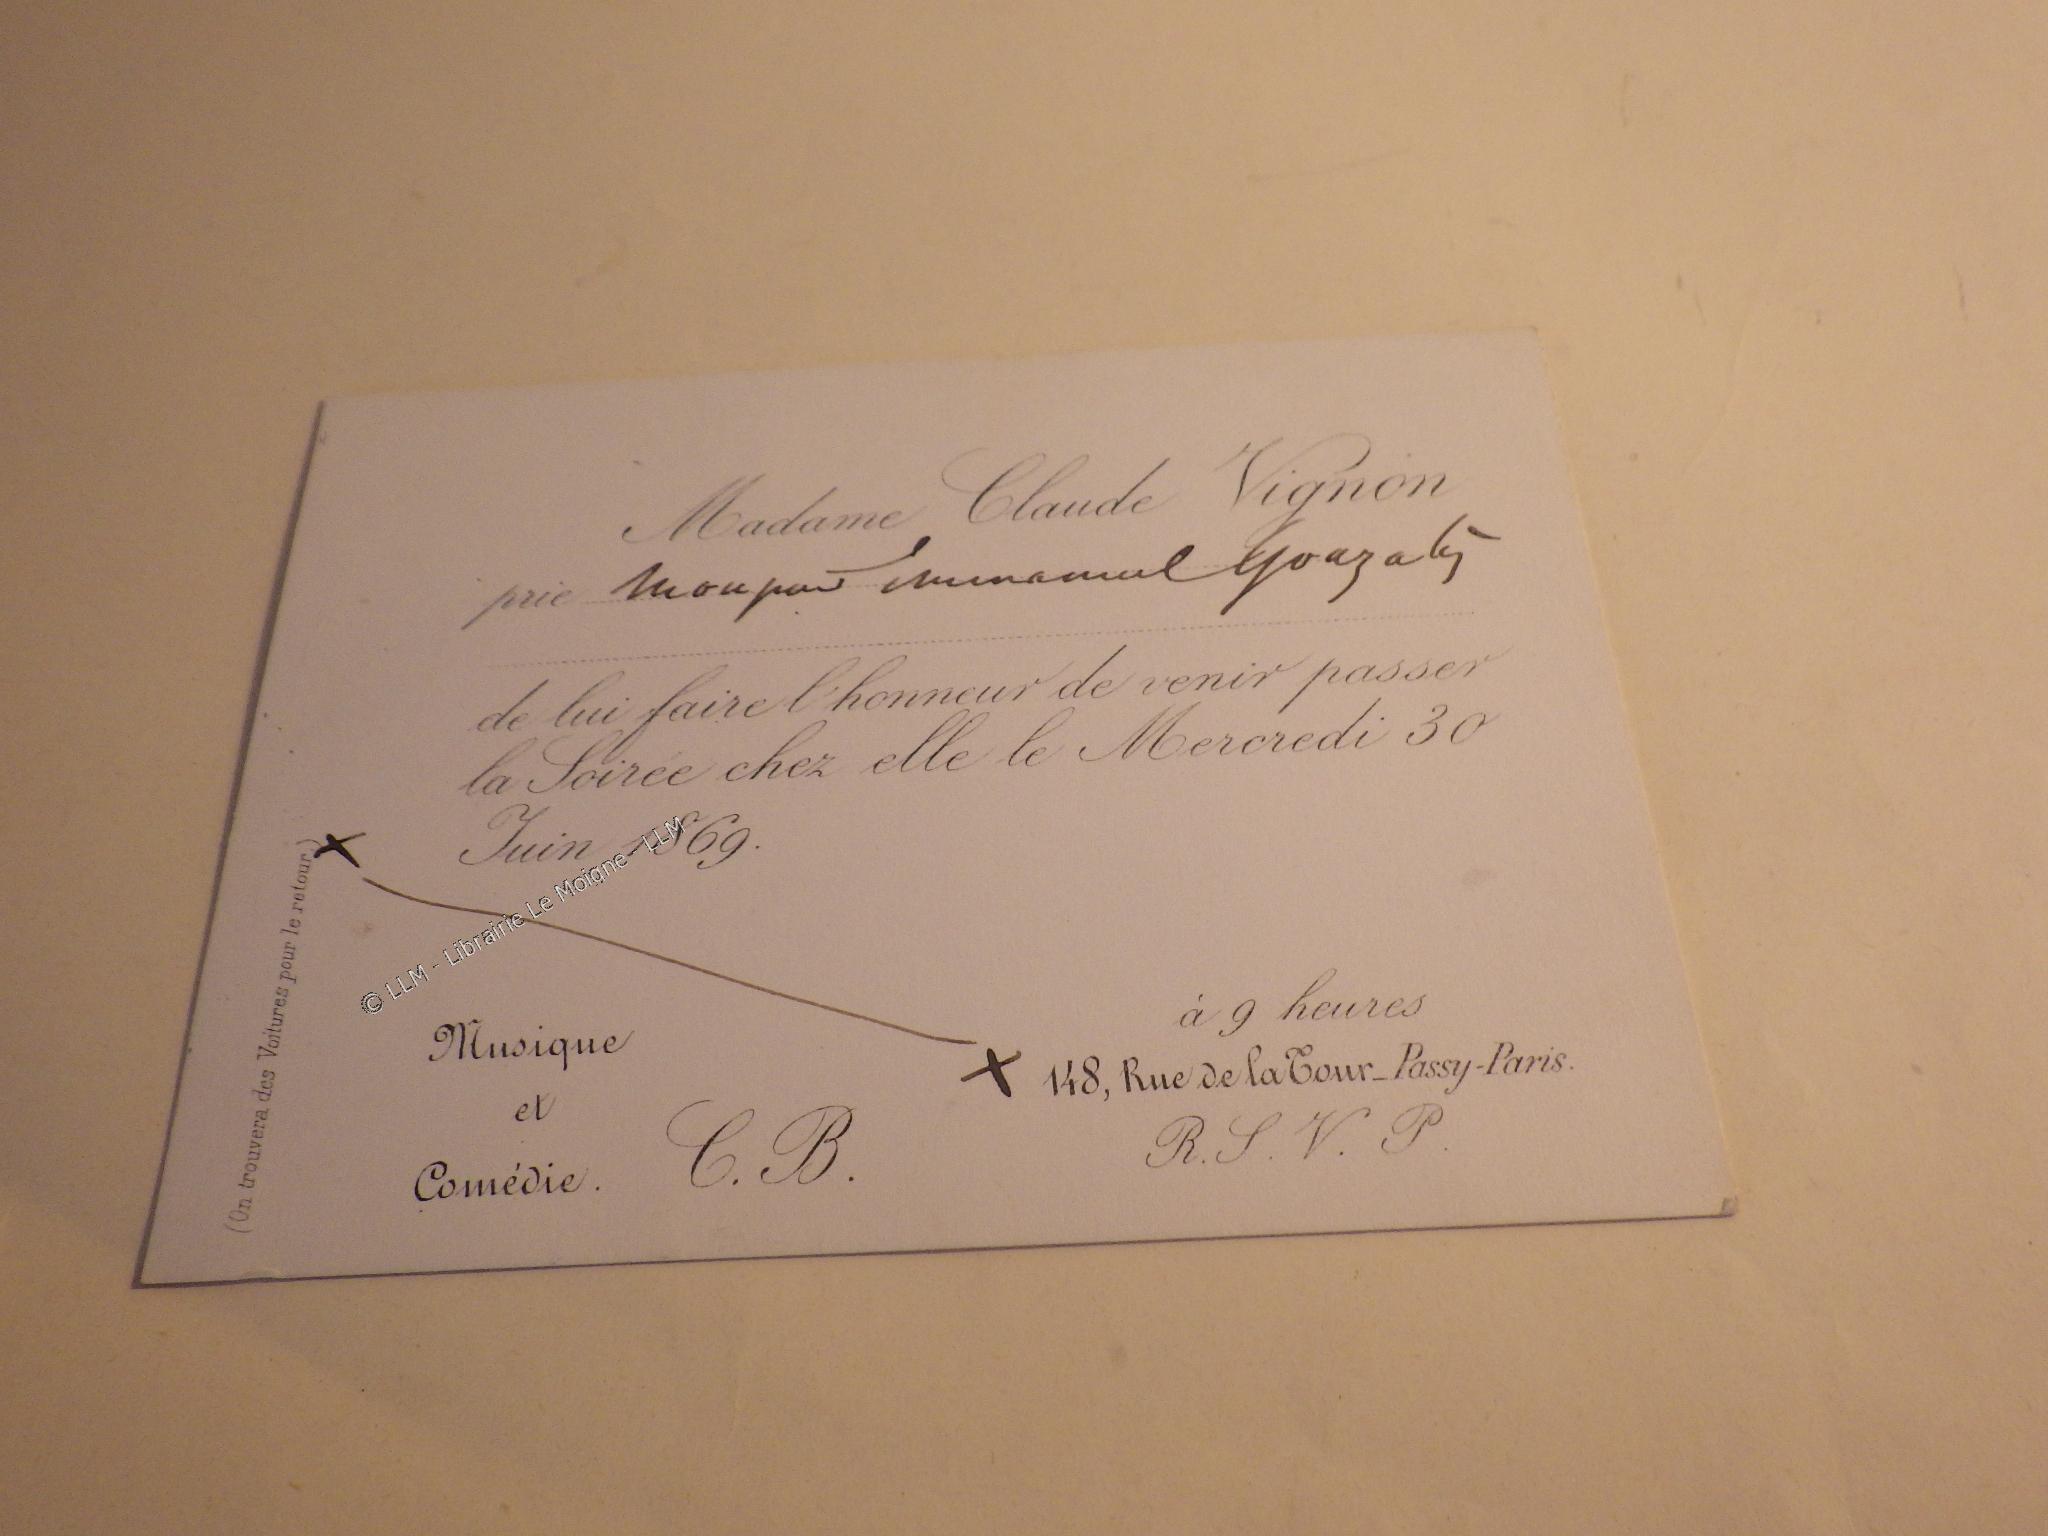 Madame Claude Vignon
prie Monsieur Emmanuel Gonzalès
de lui faire l'honneur de venir passer
la Soirée chez elle le Mercredi 30
Juin 1869.
à 9 heures
148, Rue de la Tour_Passy-Paris.
R. S. V. P.
Musique
et
Comédie.
C. B.
(On trouvera des Voitures pour le retour.)
© LLM - Librairie Le Moigne - LLM